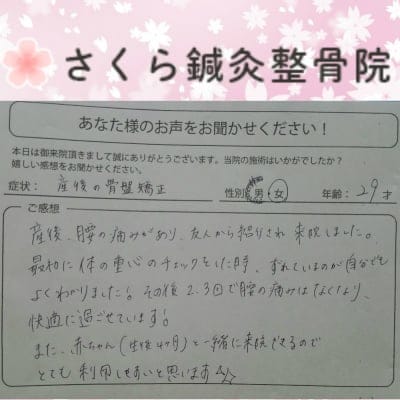 さくら鍼灸整骨院
あなた様のお声をお聞かせください！
本日は御来院頂きまして誠にありがとうございます。当院の施術はいかがでしたか？
嬉しい感想をお聞かせください。
症状： 産後の骨盤矯正 性別： 男・女 年齢： 29 才
ご感想
産後、腰の痛みがあり、友人から紹介され来院しました。
最初に体の重心のチェックをした時、ずれているのが自分でも
よくわかりました！その後2.3回で腰の痛みはなくなり、
快適に過ごせています！
また、赤ちゃん（生後4ヶ月）と一緒に来院できるので
とても利用しやすいと思います☆☆